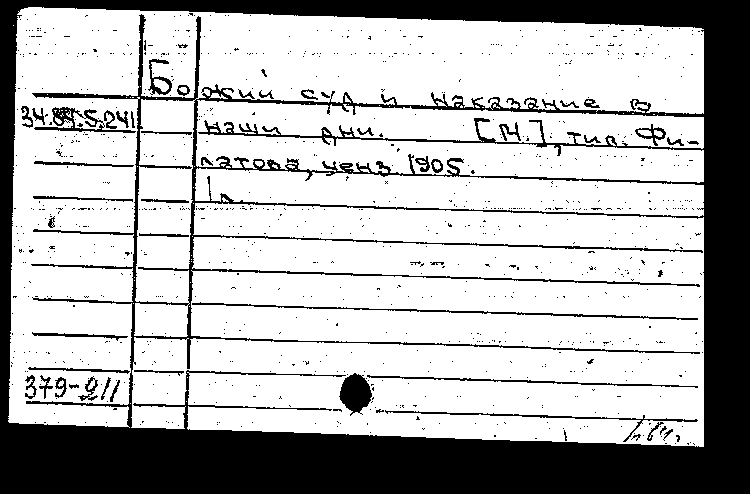 Божий суд и наказание в
34. .5.241 наши дни. [М.], тип. Фи-
латова, ценз 1905.
1 л.
379-911